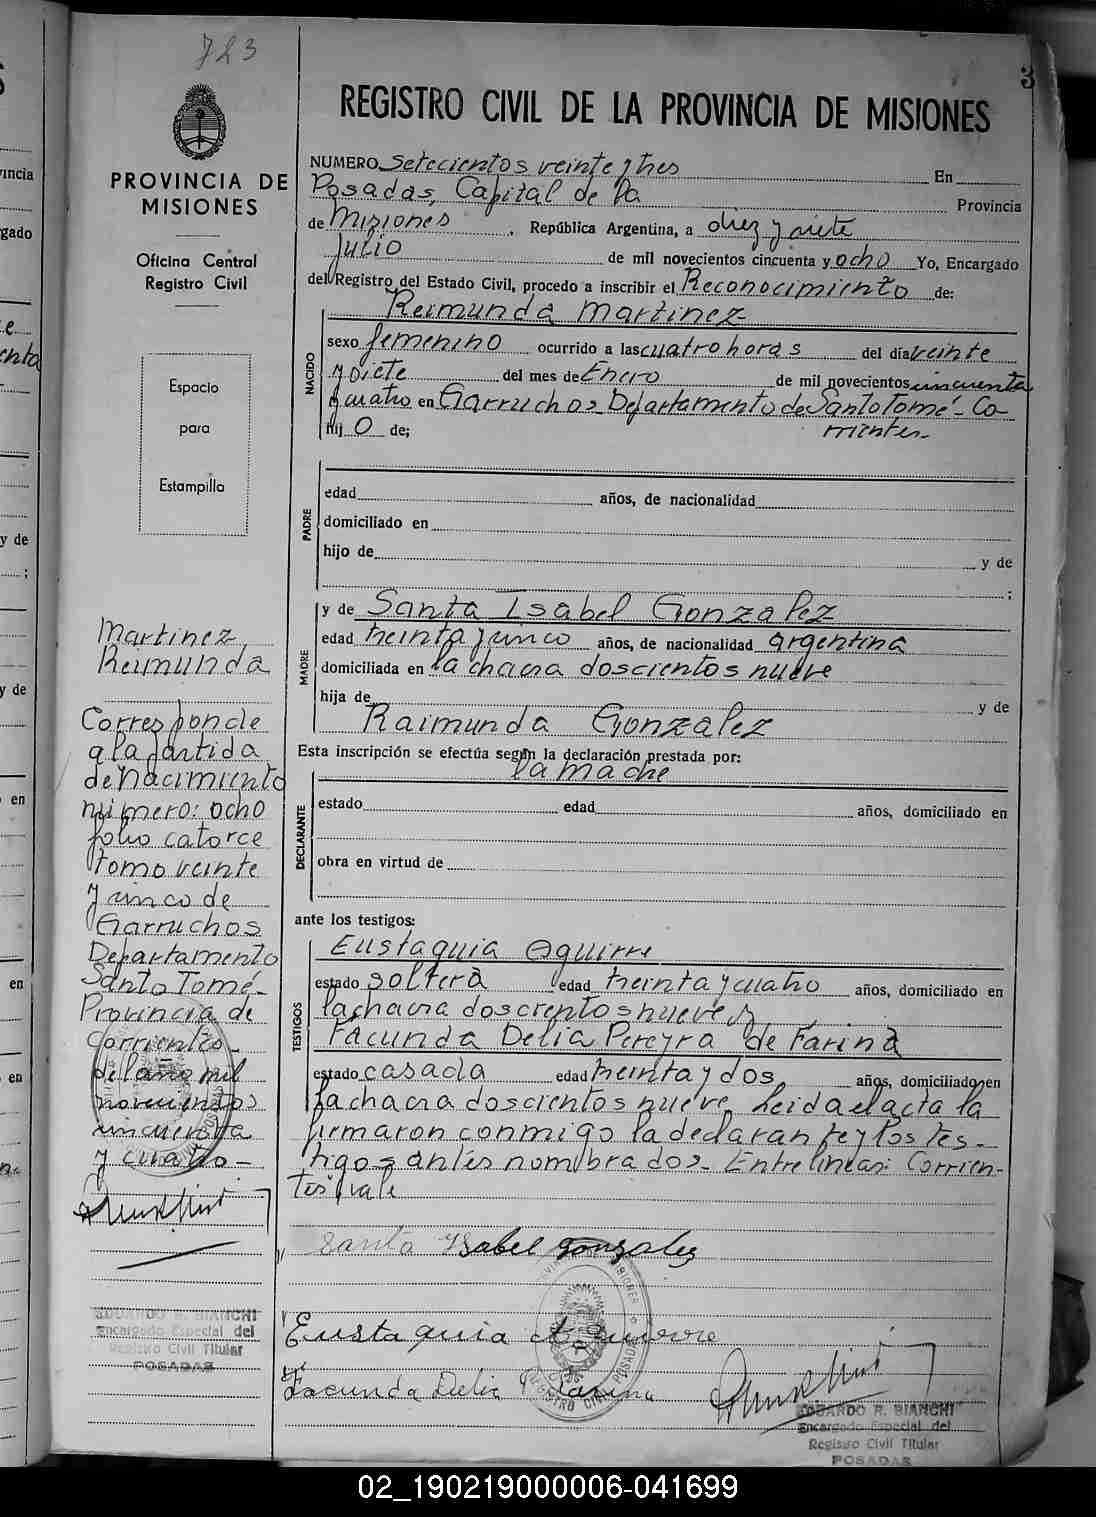 723
PROVINCIA DE
MISIONES
Oficina Central
Registro Civil
Espacio
para
Estampilla
Martinez
Reimunda
Corresponde
a la partida
de nacimiento
número: ocho
folio catorce
tomo veinte
y cinco de
Garruchos
Departamento
Santo Tomé-
Provincia de
Corrientes-
del año mil
novecientos
cincuenta
y cuatro-
EDUARDO R. BIANCHI
Encargado Especial del
Registro Civil Titular
POSADAS
3
REGISTRO CIVIL DE LA PROVINCIA DE MISIONES
NUMERO setecientos veinte y tres En
Posadas, Capital de la Provincia
de Misiones, República Argentina, a diez y siete
Julio de mil novecientos cincuenta y ocho Yo, Encargado
del Registro del Estado Civil, procedo a inscribir el Reconocimiento de:
NACIDO
Reimunda Martinez
sexo femenino ocurrido a las cuatro horas del día veinte
y siete del mes de Enero de mil novecientos cincuenta
y cuatro en Garruchos Departamento de Santo Tomé- Co-
rrientes-
hij o de;
PADRE
edad años, de nacionalidad
domiciliado en
hijo de y de
;
MADRE
y de Santa Isabel Gonzalez
edad treinta y cinco años, de nacionalidad argentina
domiciliada en la chacra doscientos nueve
hija de y de
Raimunda Gonzalez
Esta inscripción se efectúa según la declaración prestada por:
la madre
DECLARANTE
estado edad años, domiciliado en
obra en virtud de
ante los testigos:
TESTIGOS
Eustaquia Aguirre
estado soltera edad treinta y cuatro años, domiciliado en
la chacra doscientos nueve y
Facunda Delia Pereyra de Farina
estado casada edad treinta y dos años, domiciliado en
la chacra doscientos nueve. Leida el acta la
firmaron conmigo la declarante y los tes-
tigos antes nombrados- Entrelineas: Corrien-
tes vale
Santa Ysabel gonzalez
Eustaquia Aguirre
Facunda Delia P. Farina
EDUARDO R. BIANCHI
Encargado Especial del
Registro Civil Titular
POSADAS
02_190219000006-041699